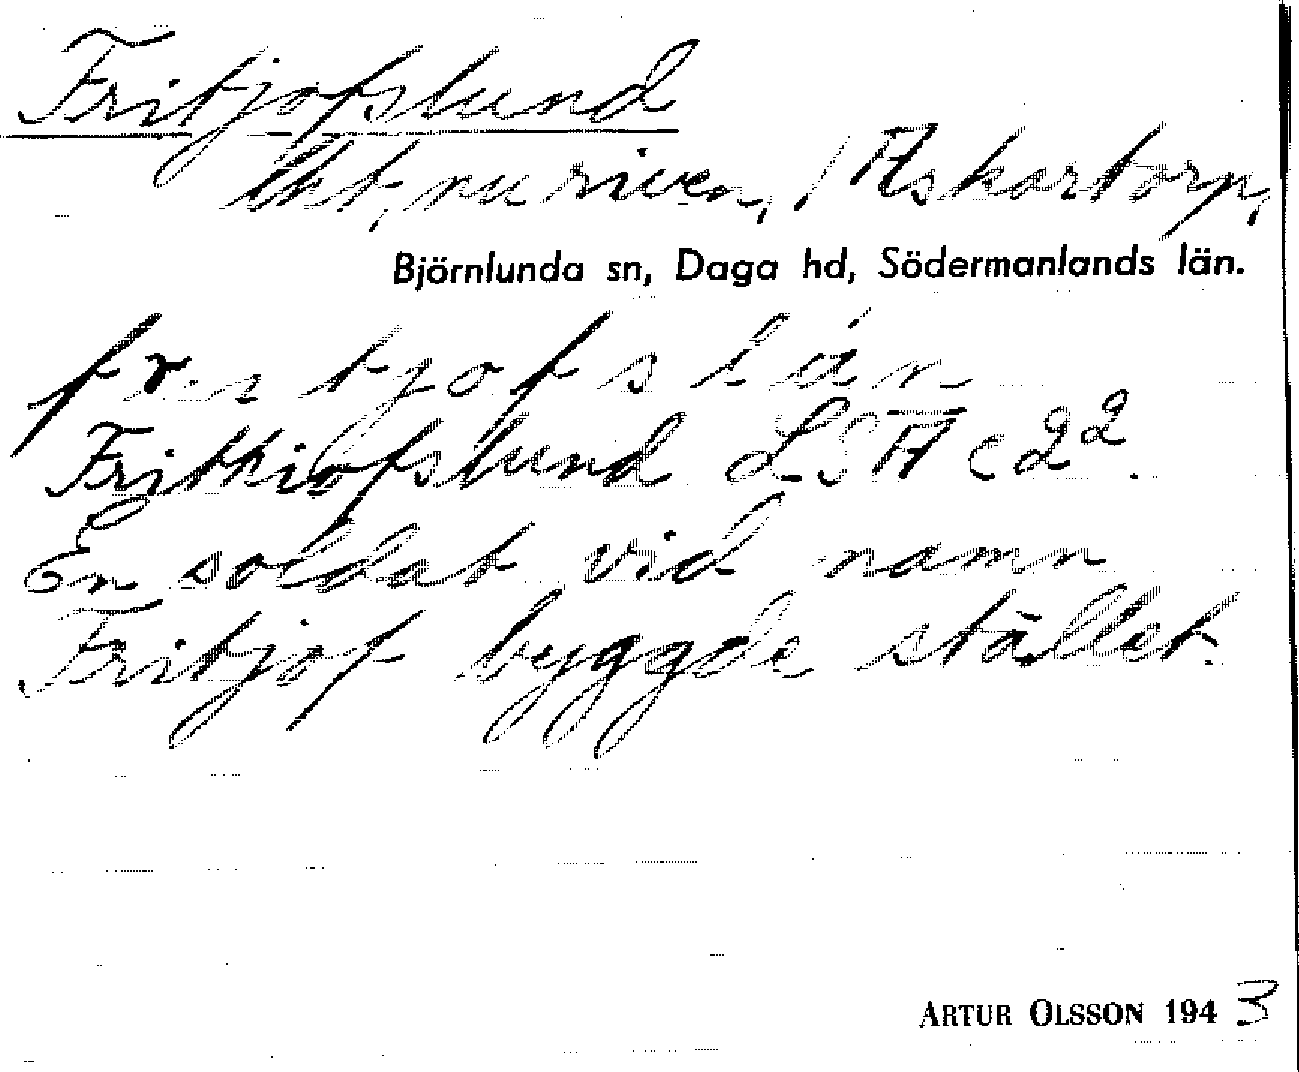 Fritjofslund
lht, nu riven, / Askartorp,
Björnlunda sn, Daga hd, Södermanlands län.
fritjofslún
Frithiofslund LSA C22.
En soldat vid namn
Fritjof byggde stället.
ARTUR OLSSON 1943